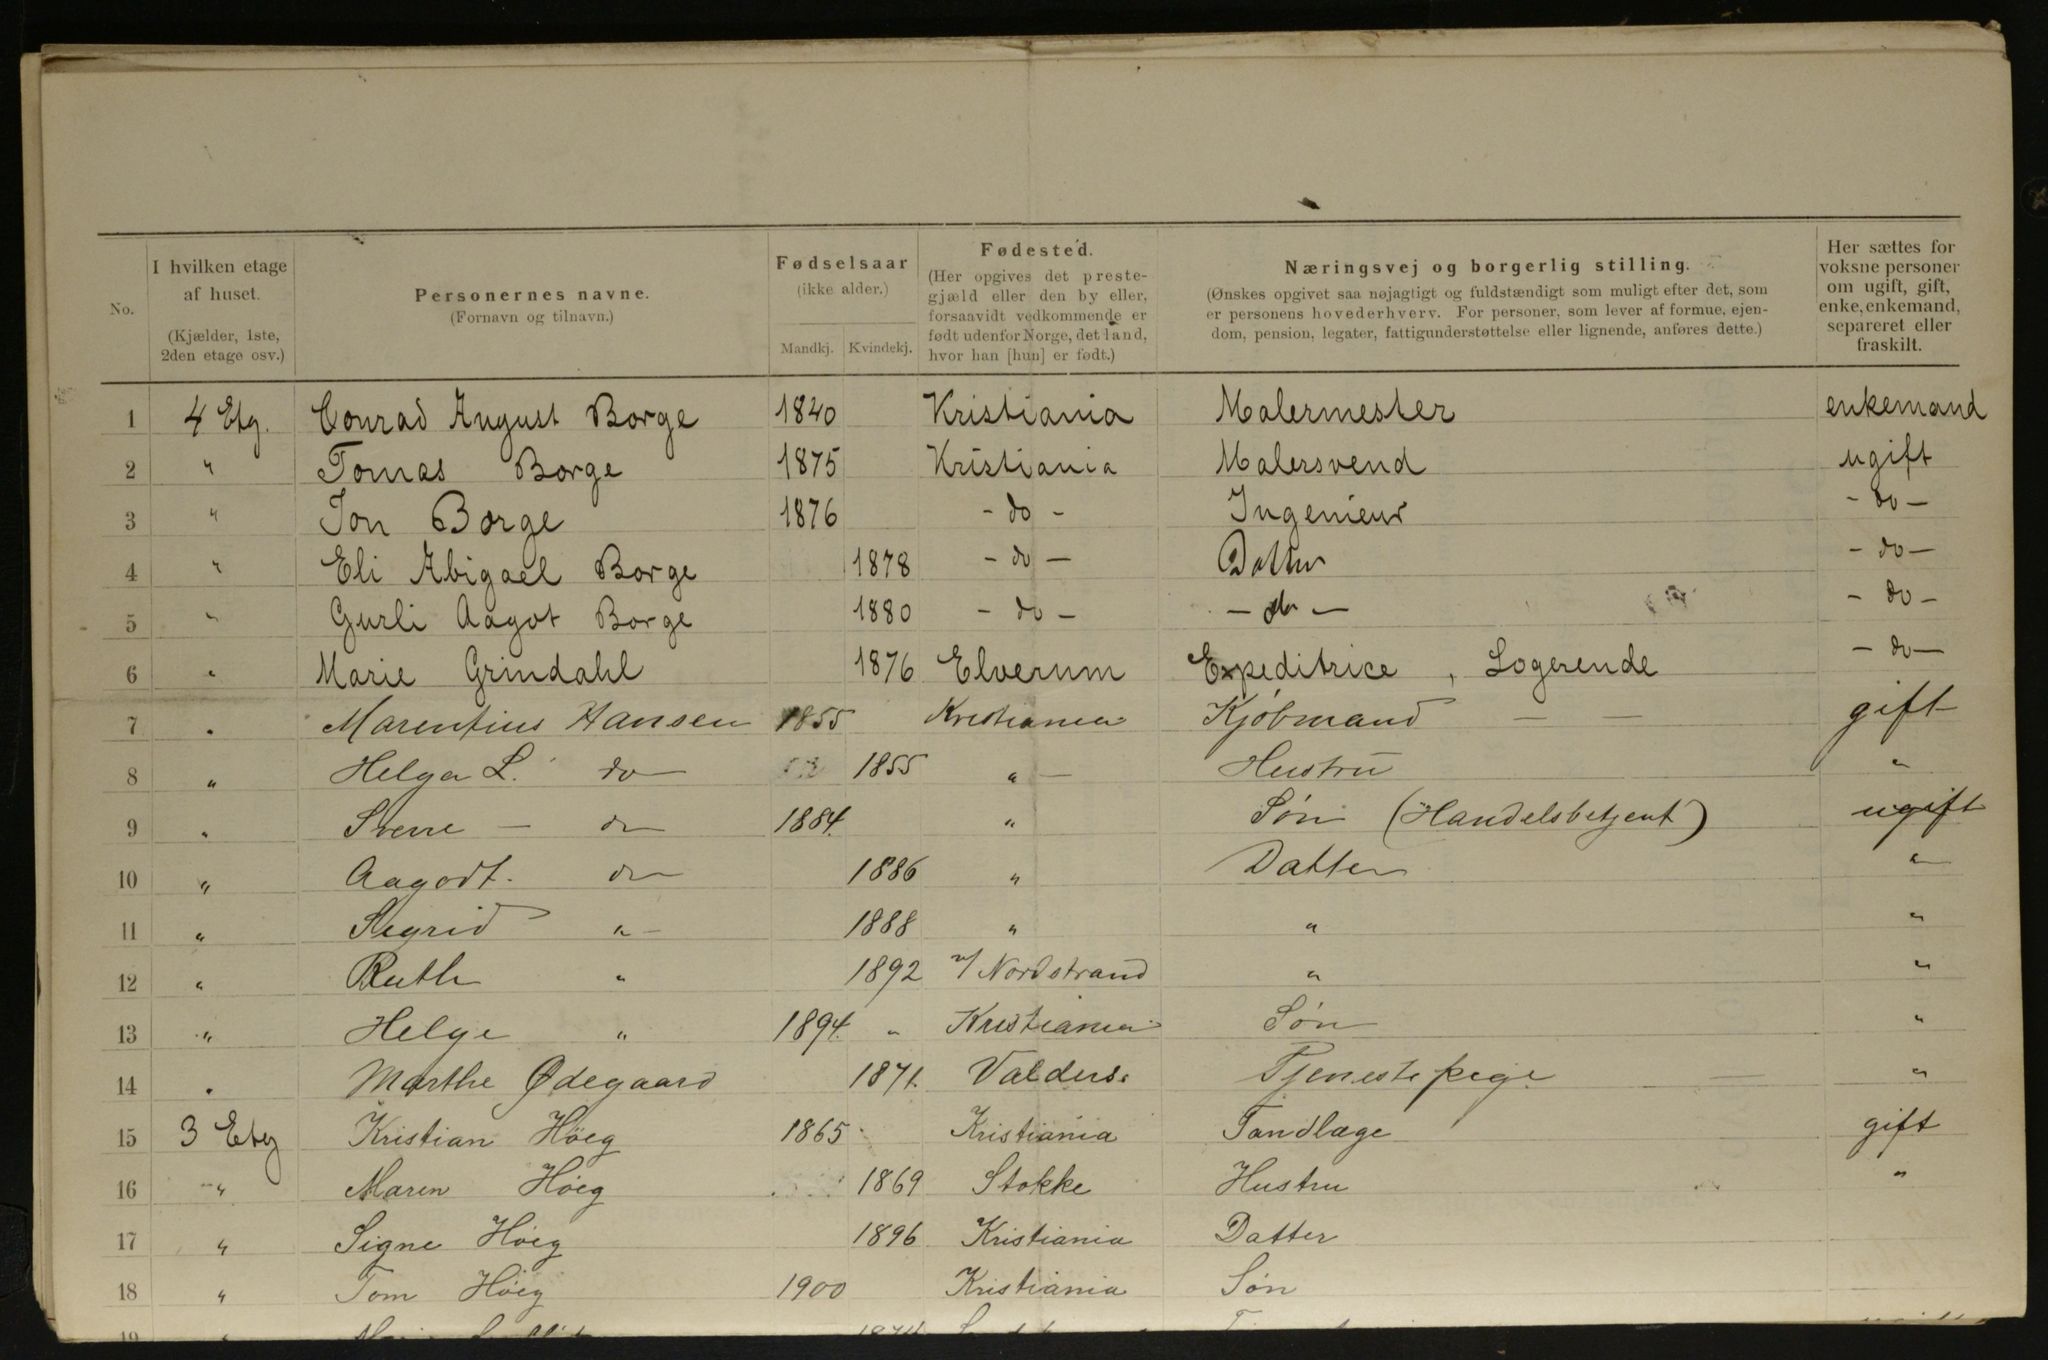 No.
I hvilken etage af huset.
(Kjælder, 1ste, 2den etage osv.)
Personernes navne.
(Fornavn og tilnavn.)
Fødselsaar
(ikke alder.)
Mandkj. Kvindekj.
Fødested.
(Her opgives det preste-
gjæld eller den by eller,
forsaavidt vedkommende er
født udenfor Norge, det land,
hvor han [hun] er født.)
Næringsvej og borgerlig stilling.
(Ønskes opgivet saa nøjagtigt og fuldstændigt som muligt efter det, som
er personens hovederhverv. For personer, som lever af formue, ejen-
dom, pension, legater, fattigunderstøttelse eller lignende, anføres dette.)
Her sættes for
voksne personer
om ugift, gift,
enke, enkemand,
separeret eller
fraskilt.
1 4 Etg. Conrad August Borge 1840 Kristiania Malermester enkemand
2 " Tomas Borge 1875 Kristiania Malersvend ugift
3 " Jon Borge 1876 - do - Ingeniør - do -
4 " Eli Abigael Borge 1878 - do - Datter - do -
5 " Gurli Aagot Borge 1880 - do - - do - - do -
6 " Marie Grindahl 1876 Elverum Expeditrice, Logerende - do -
7 " Marentius Hansen 1855 Kristiania Kjøbmand - - gift
8 " Helga L. do 1855 " - Hustru "
9 " Sverre - do 1884. " Søn (Handelsbetjent) ugift
10 " Aagodt. do 1886 " Datter "
11 " Sigrid " - 1888 " " "
12 " Ruth " 1892 Nordstrand " "
13 " Helge " 1894. " Kristiania Søn "
14 " Marthe Ødegaard 1871. Valders. Tjenestepige "
15 3 Etg Kristian Höeg 1865 Kristiania Tandlæge gift
16 " Maren Höeg 1869 Stokke Hustru "
17 " Signe Höeg 1896 Kristiania Datter
18 " Tom Höeg 1900 Kristiania Søn
19